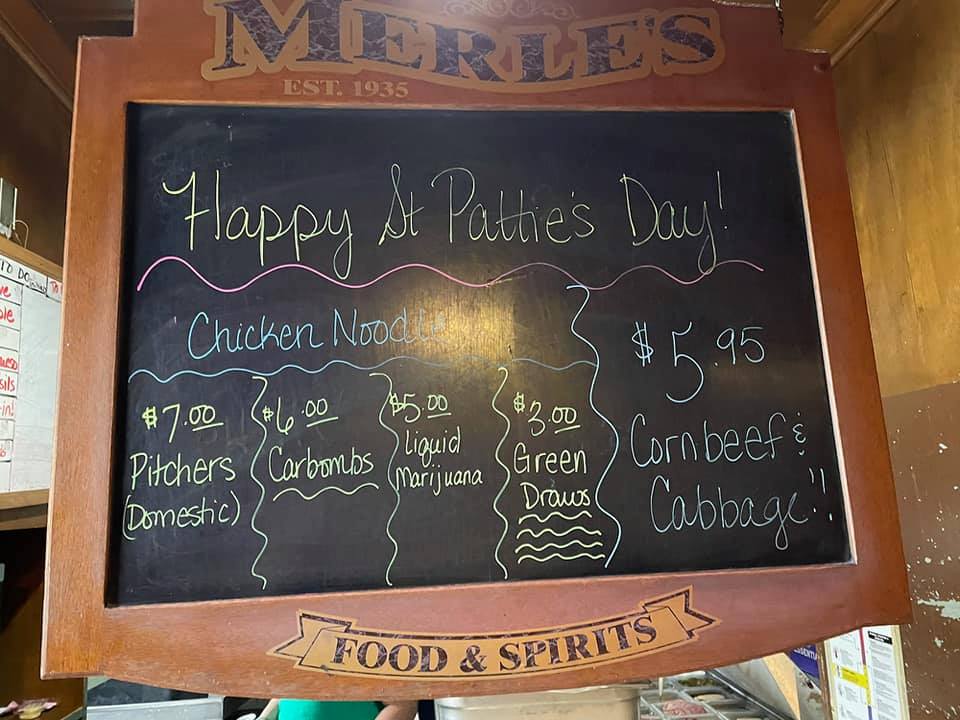 MERLE'S
EST. 1935
Happy St Pattie's Day!
Chicken Noodle
$7.00
Pitchers
(Domestic)
$6.00
Carbombs
$5.00
Liquid
Marijuana
$3.00
Green
Draws
$5.95
Cornbeef &
Cabbage!!
FOOD & SPIRITS
TO DO